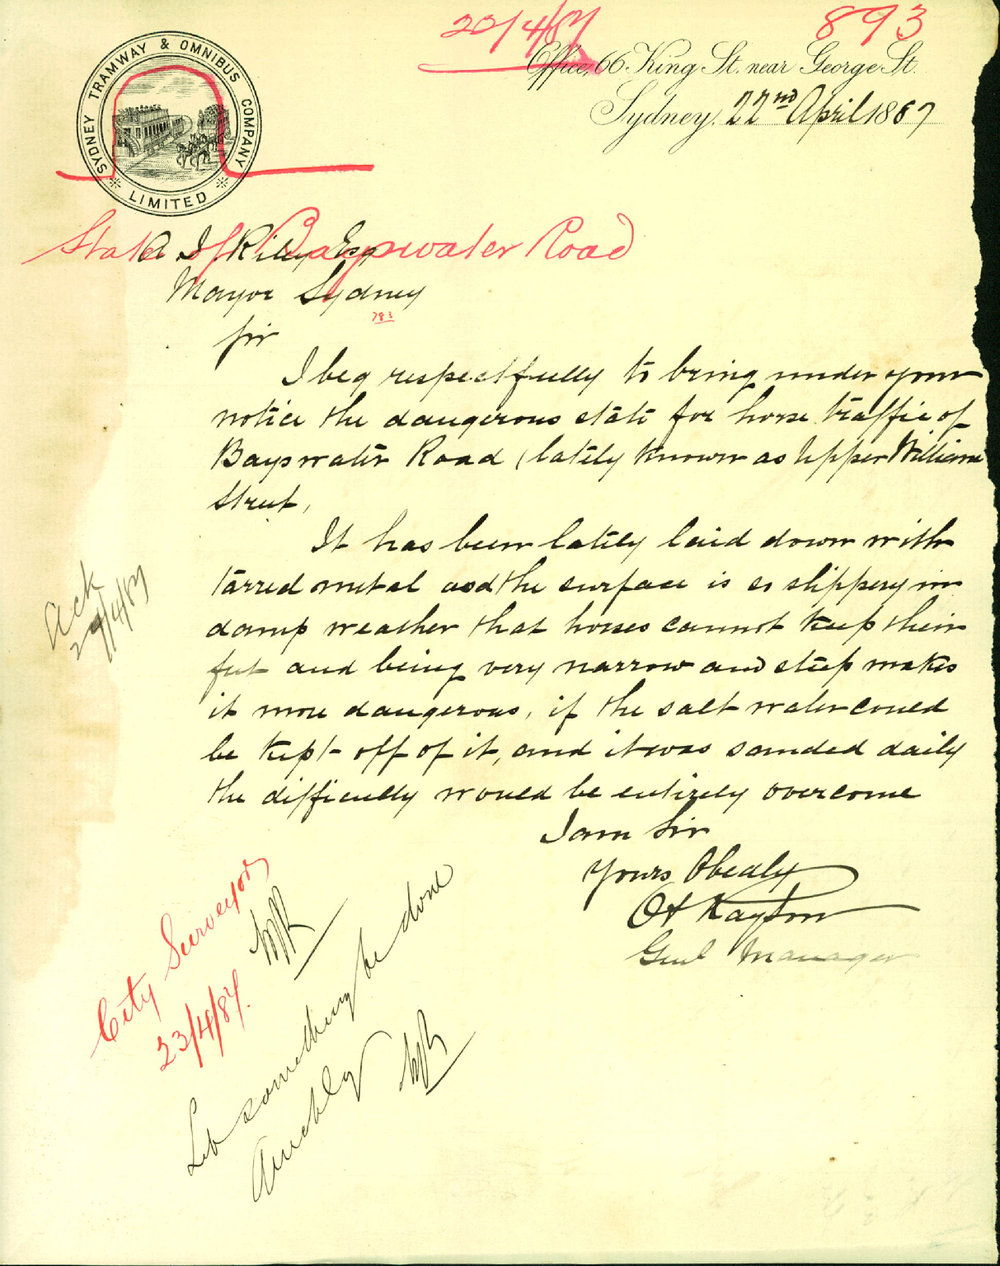 22/4/87
893
SYDNEY TRAMWAY & OMNIBUS COMPANY
LIMITED
Office, 66 King St. near George St.
Sydney, 22nd April 1887
State of Bayswater Road
A J Riley Esq
Mayor Sydney
783
Sir
I beg respectfully to bring under your
notice the dangerous state for horse traffic of
Bayswater Road (lately known as Upper William
Street,
It has been lately laid down with
tarred metal and the surface is so slippery in
damp weather that horses cannot keep their
feet and being very narrow and steep makes
it more dangerous, if the salt water could
be kept off of it, and it was sanded daily
the difficulty would be entirely overcome
I am Sir
Yours Obedly
Genl Manager
Ack
City Surveyor
23/4/87.
Let something be done
Quickly